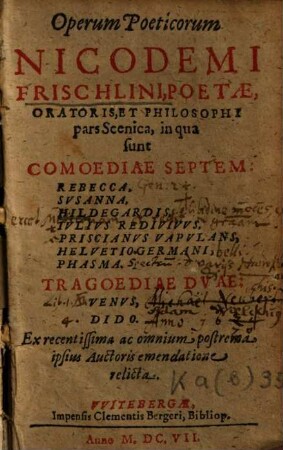 Operum Poeticorum
NICODEMI
FRISCHLINI, POETÆ,
ORATORIS, ET PHILOSOPHI
pars Scenica, in qua
sunt
COMOEDIAE SEPTEM:
REBECCA, Gen: 24.
SVSANNA,
HILDEGARDIS,
IVLIVS REDIVIVUS,
PRISCIANVS VAPVLANS,
HELVETIOGERMANI,
PHASMA.
TRAGOEDIAE DVAE:
VENVS,
DIDO.
Ex recentissima ac omnium postrema
ipsius Auctoris emendatione
relicta.
VVITEBERGÆ,
Impensis Clementis Bergeri, Bibliop.
Anno M. DC. VII.